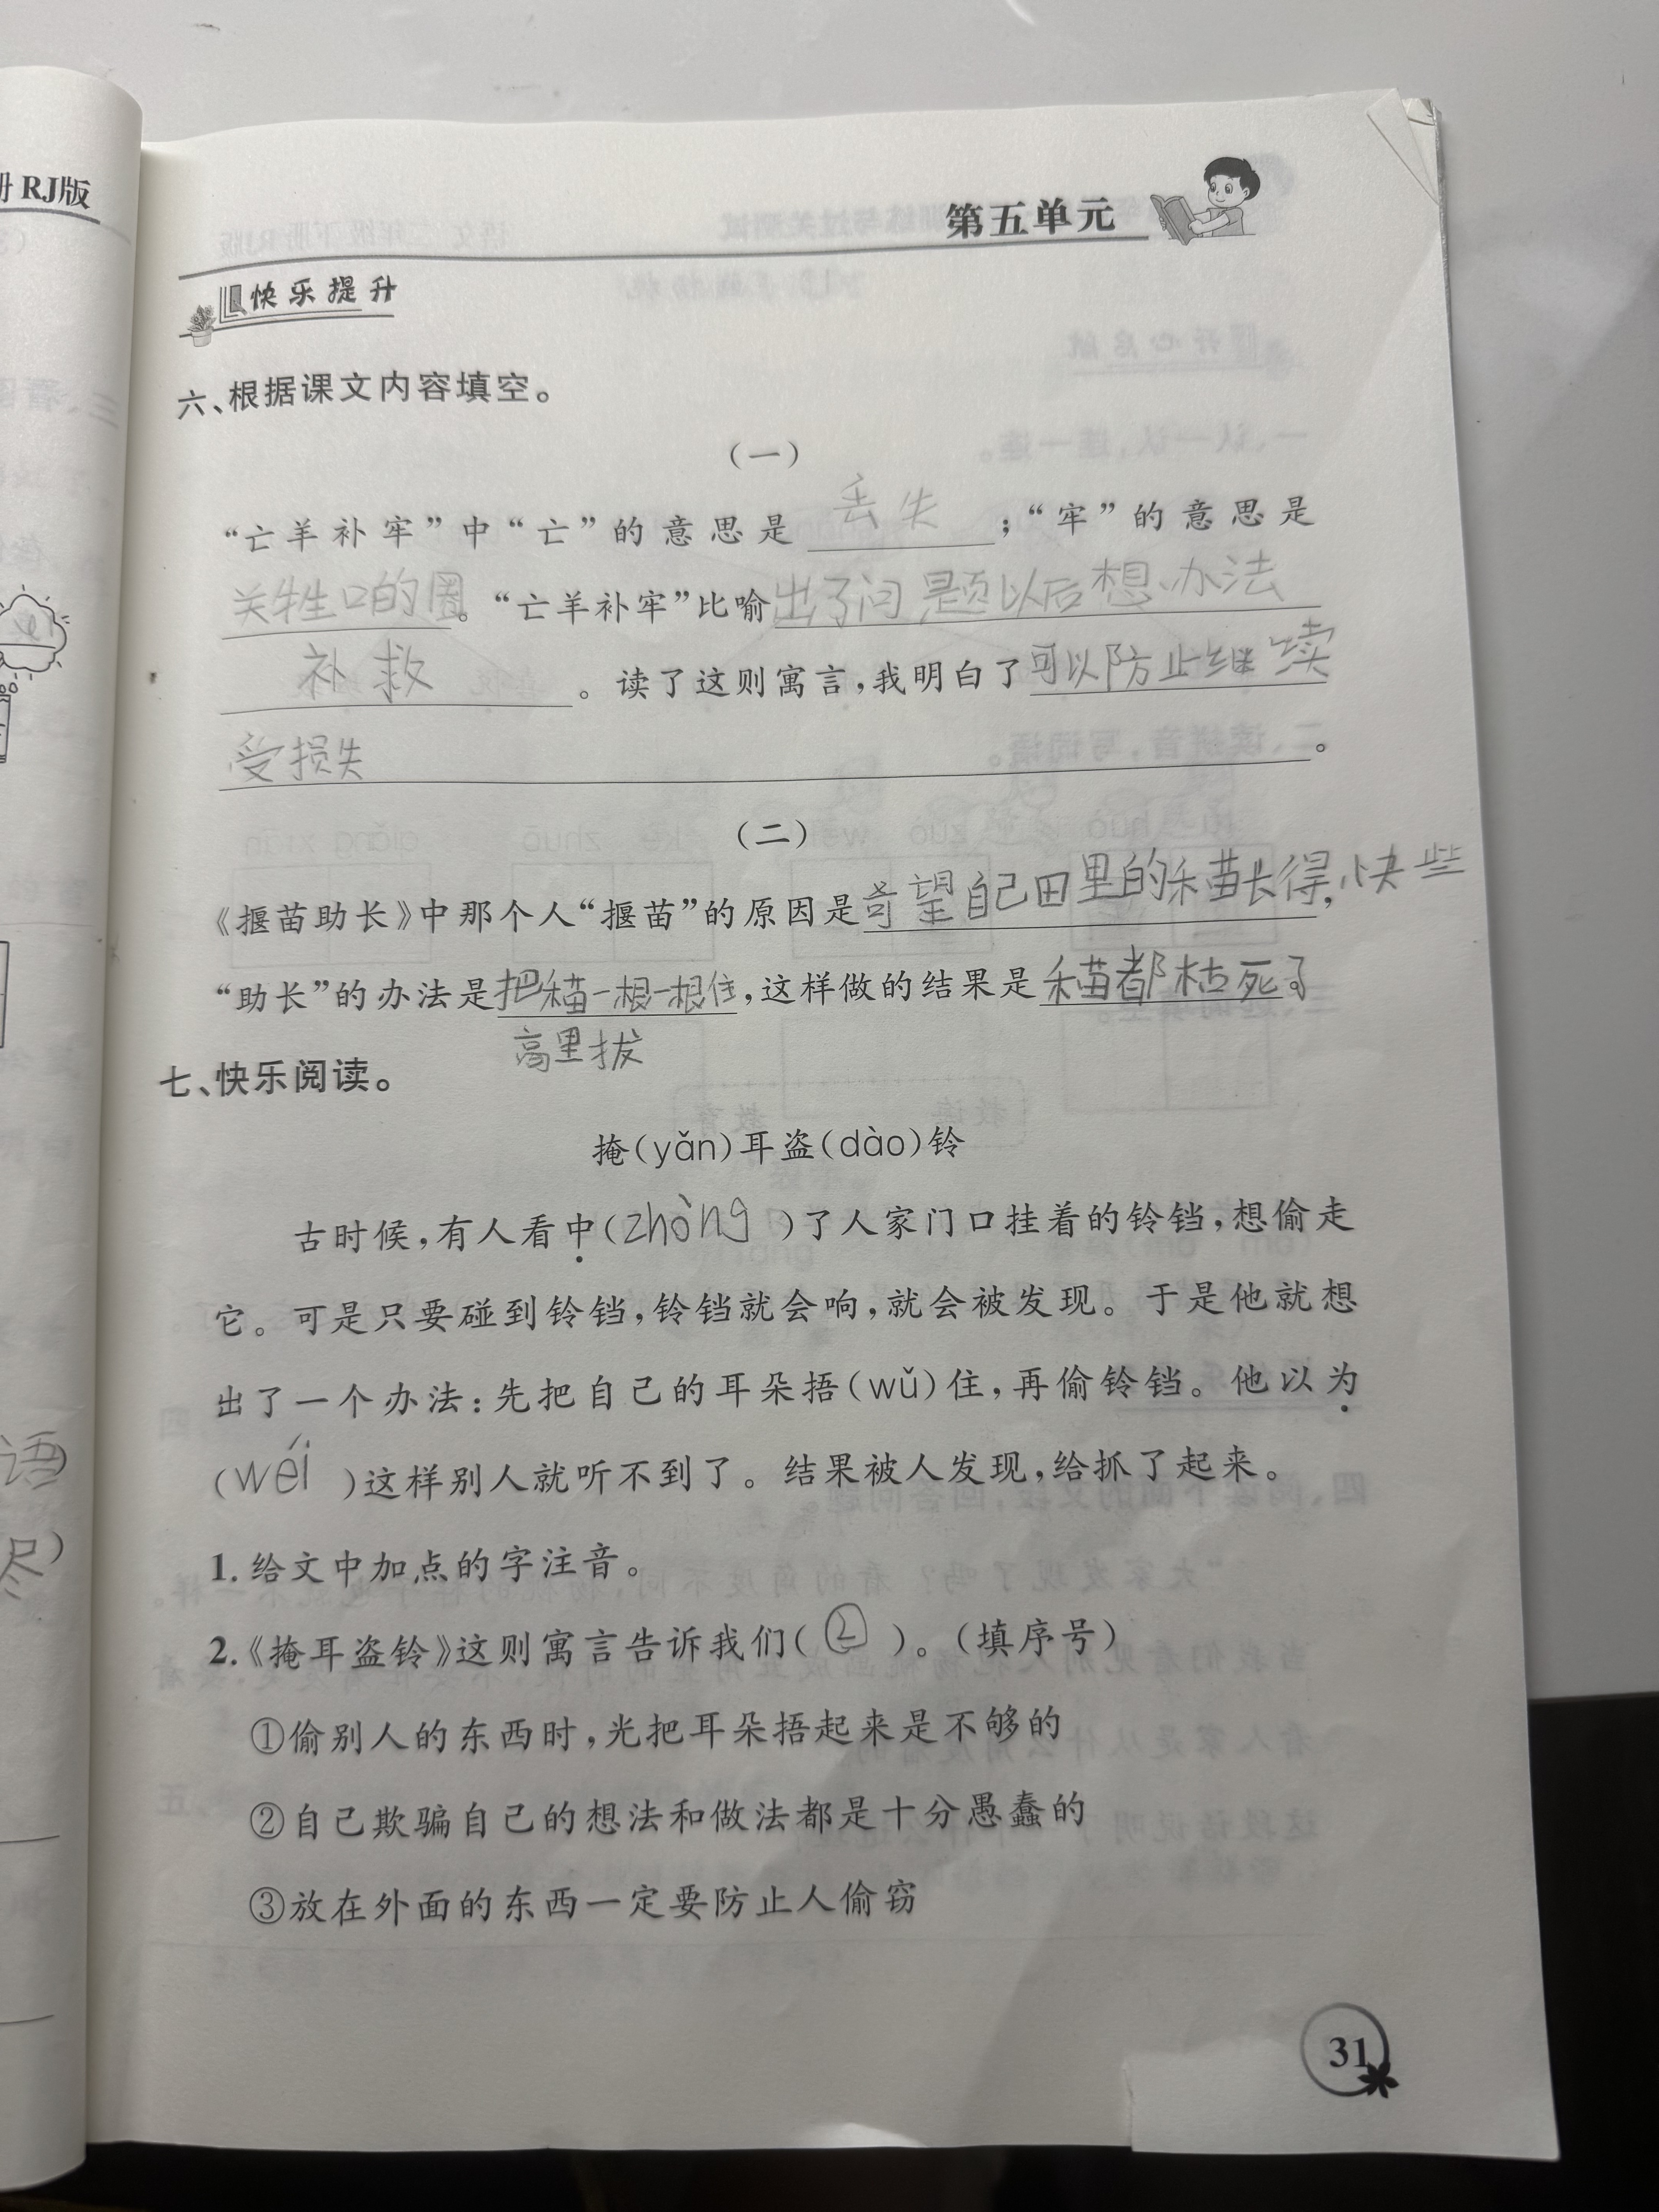 册 RJ版
第五单元
快乐提升
六、根据课文内容填空。
（一）
“亡羊补牢”中“亡”的意思是 丢失 ；“牢”的意思是
关牲口的圈。“亡羊补牢”比喻出了问题以后想办法
补救 。读了这则寓言，我明白了可以防止继续
受损失 。
（二）
《揠苗助长》中那个人“揠苗”的原因是望自己田里的禾苗长得快些，
“助长”的办法是把禾苗一根一根往，这样做的结果是禾苗都枯死了
高里拔
七、快乐阅读。
掩（yǎn）耳盗（dào）铃
古时候，有人看中（zhòng）了人家门口挂着的铃铛，想偷走
它。可是只要碰到铃铛，铃铛就会响，就会被发现。于是他就想
出了一个办法：先把自己的耳朵捂（wǔ）住，再偷铃铛。他以为
（wéi）这样别人就听不到了。结果被人发现，给抓了起来。
1.给文中加点的字注音。
2.《掩耳盗铃》这则寓言告诉我们（②）。（填序号）
①偷别人的东西时，光把耳朵捂起来是不够的
②自己欺骗自己的想法和做法都是十分愚蠢的
③放在外面的东西一定要防止人偷窃
31
语